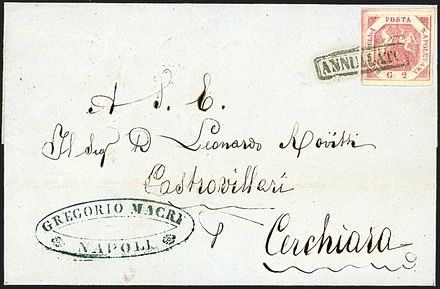 POSTA NAPOLETANA
G 2
ANNULLATO
A S. E.
Il Sig D Leonardo
Castrovillari
p Cerchiara
GREGORIO MACRI
NAPOLI